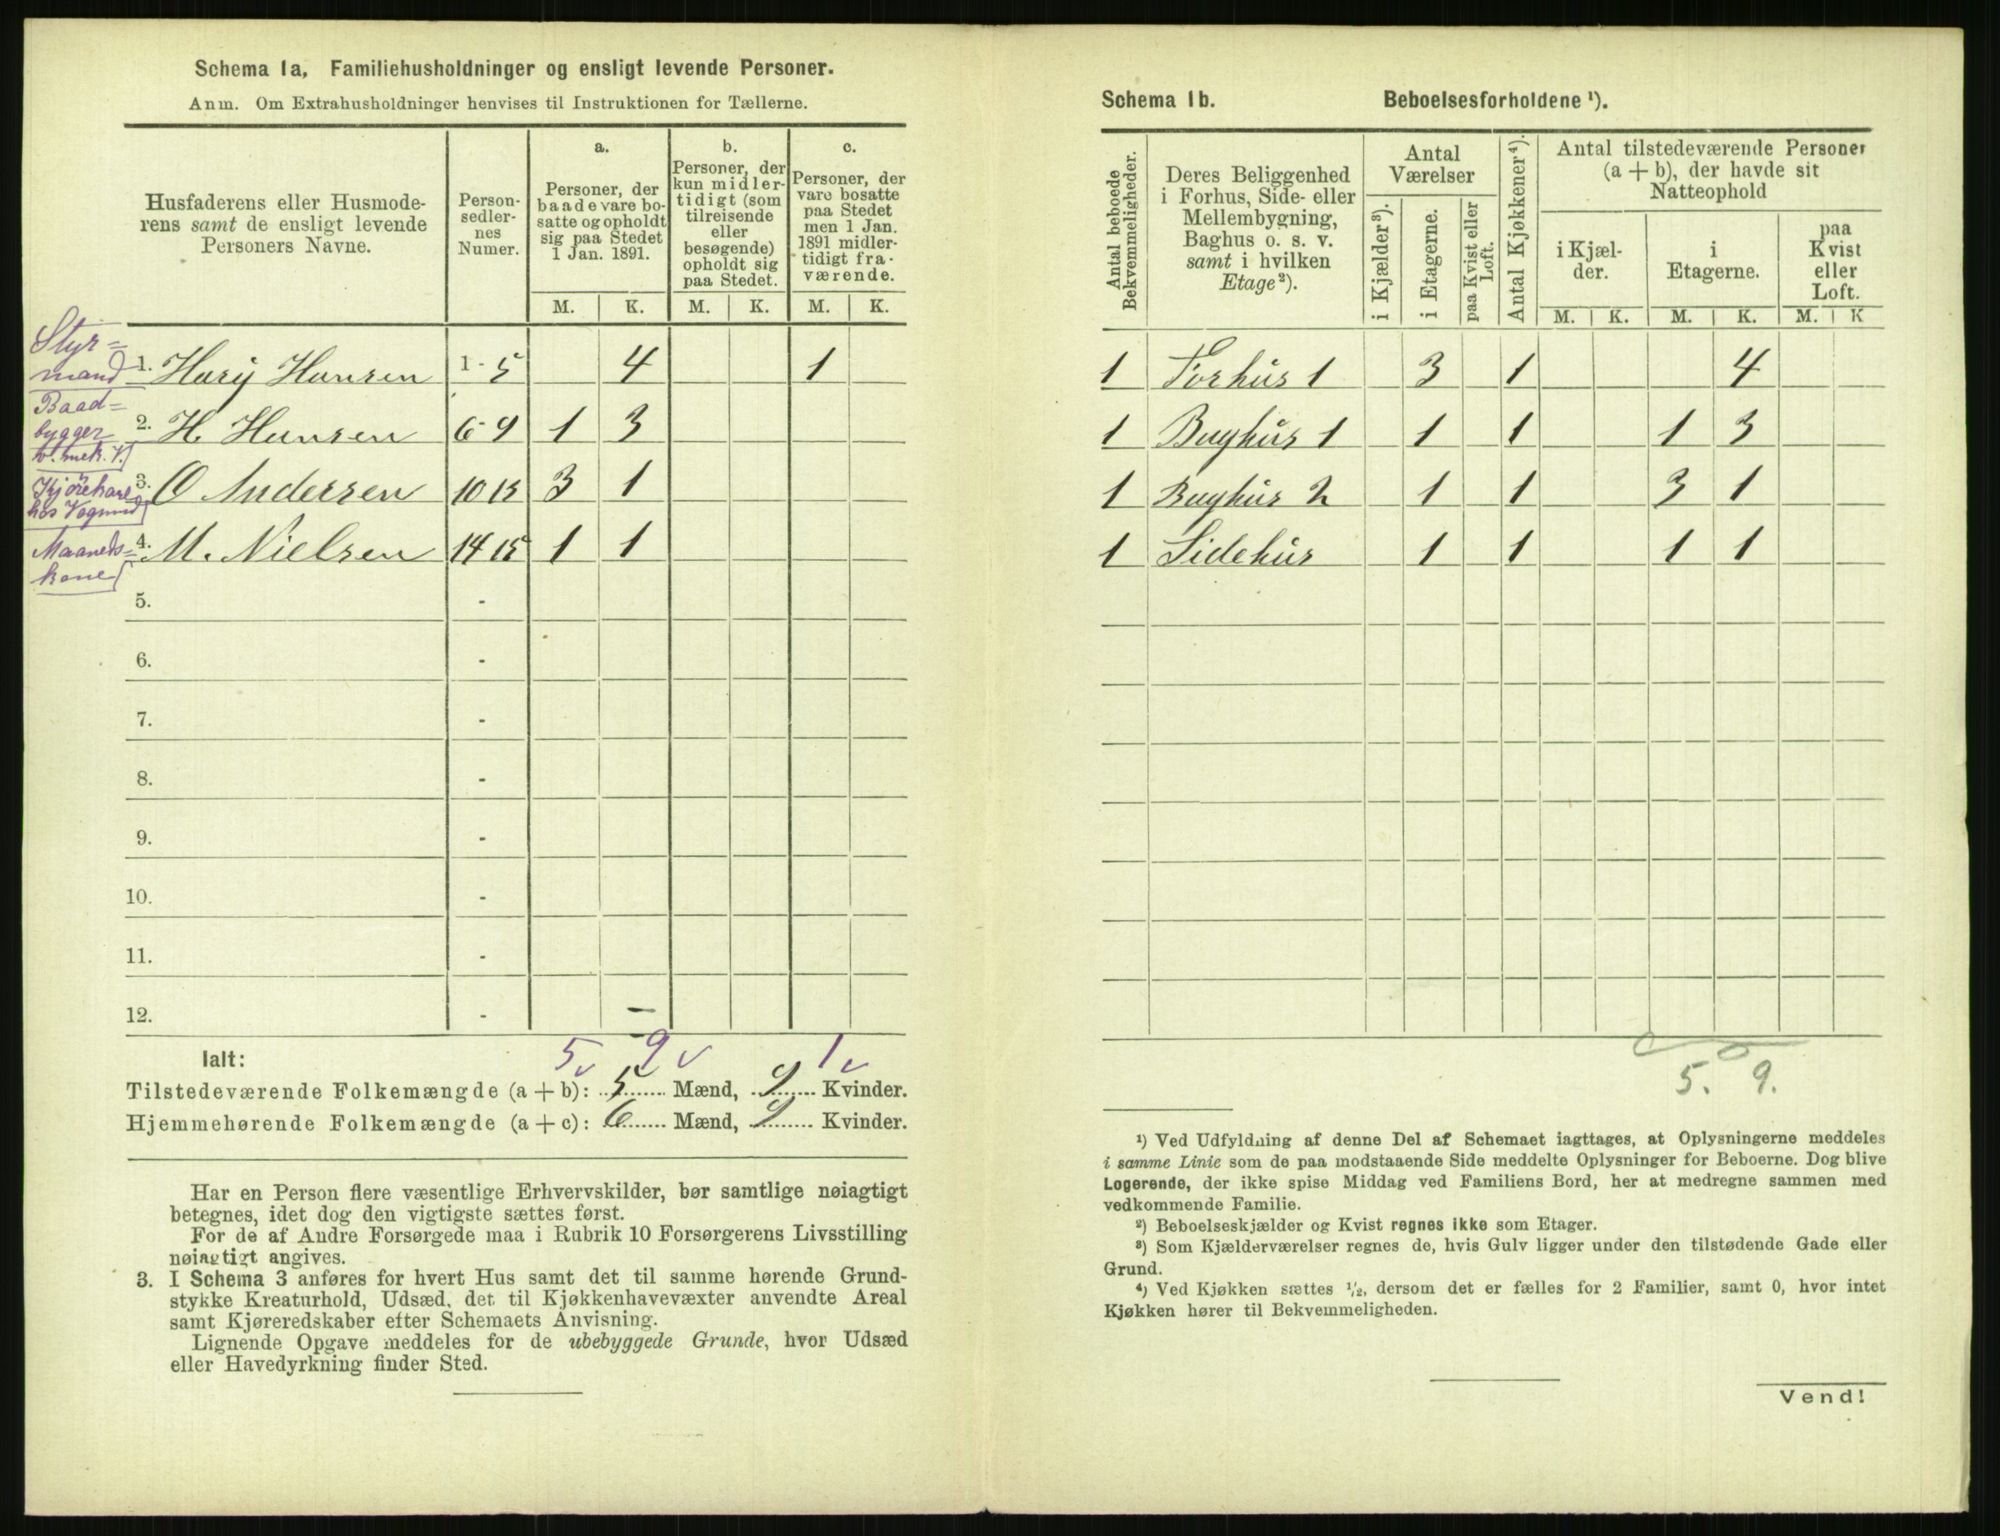 Schema 1a, Familiehusholdninger og ensligt levende Personer.
Anm. Om Extrahusholdninger henvises til Instruktionen for Tællerne.
Husfaderens eller Husmode-
rens samt de ensligt levende
Personers Navne.
Person-
sedler-
nes
Numer.
a.
Personer, der
baade vare bo-
satte og opholdt
sig paa Stedet
1 Jan. 1891.
b.
Personer, der
kun midler-
tidigt (som
tilreisende
eller
besøgende)
opholdt sig
paa Stedet.
c.
Personer, der
vare bosatte
paa Stedet
men 1 Jan.
1891 midler-
tidigt fra-
værende.
M. K. M. K. M. K.
Styr=
mand
1. Hary Hansen 1-5 4 1
Baad=
bygger
2. H. Hansen 6-9 1 3
3. O Andersen 10 13 3 1
Kjørekarl
hos
Maaneds=
kone
4. M. Nielsen 14 15 1 1
5. -
6. -
7. -
8. -
9. -
10. -
11. -
12. -
5 9 1
Ialt:
Tilstedeværende Folkemængde (a + b): 5 Mænd, 9 Kvinder.
Hjemmehørende Folkemængde (a + c): 6 Mænd, 9 Kvinder.
Har en Person flere væsentlige Erhvervskilder, bør samtlige nøiagtigt
betegnes, idet dog den vigtigste sættes først.
For de af Andre Forsørgede maa i Rubrik 10 Forsørgerens Livsstilling
nøiagtigt angives.
3. I Schema 3 anføres for hvert Hus samt det til samme hørende Grund-
stykke Kreaturhold, Udsæd, det til Kjøkkenhavevæxter anvendte Areal
samt Kjøreredskaber efter Schemaets Anvisning.
Lignende Opgave meddeles for de ubebyggede Grunde, hvor Udsæd
eller Havedyrkning finder Sted.
Schema 1b. Beboelsesforholdene ¹).
Antal beboede
Bekvemmeligheder.
Deres Beliggenhed
i Forhus, Side- eller
Mellembygning,
Baghus o. s. v.
samt i hvilken
Etage²).
Antal
Værelser
i Kjælder³).
i Etagerne.
paa Kvist eller
Loft.
Antal Kjøkkener⁴).
Antal tilstedeværende Personer
(a + b), der havde sit
Natteophold
i Kjæl-
der.
i
Etagerne.
paa
Kvist
eller
Loft.
M. K. M. K. M. K
1 Forhus 1 3 1 4
1 Baghus 1 1 1 1 3
1 Baghus 2 1 1 3 1
1 Sidehus 1 1 1 1
5. 9.
¹) Ved Udfyldning af denne Del af Schemaet iagttages, at Oplysningerne meddeles
i samme Linie som de paa modstaaende Side meddelte Oplysninger for Beboerne. Dog blive
Logerende, der ikke spise Middag ved Familiens Bord, her at medregne sammen med
vedkommende Familie.
²) Beboelseskjælder og Kvist regnes ikke som Etager.
³) Som Kjælderværelser regnes de, hvis Gulv ligger under den tilstødende Gade eller
Grund.
⁴) Ved Kjøkken sættes ½, dersom det er fælles for 2 Familier, samt 0, hvor intet
Kjøkken hører til Bekvemmeligheden.
Vend!